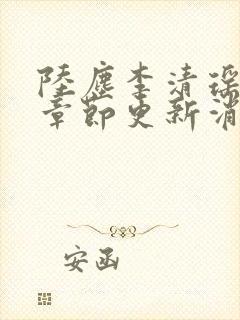 陸塵李清瑤
章節更新消
安函